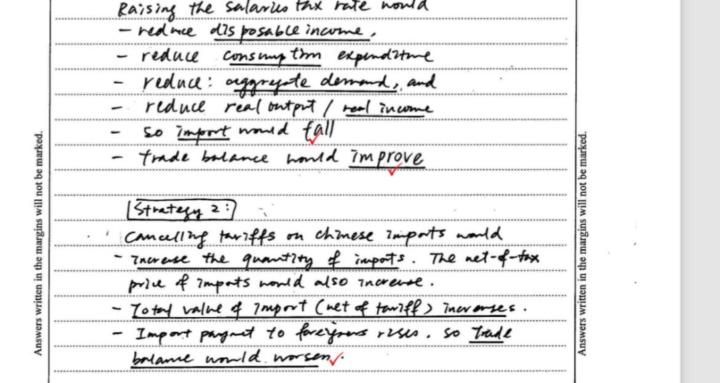 Raising the salaries tax rate would
- reduce disposable income,
- reduce consumption expenditure
- reduce: aggregate demand, and
- reduce real output / real income
- so import would fall
- trade balance would improve
Strategy 2:
Cancelling tariffs on chinese imports would
- Increase the quantity of imports. The net-of-tax
price of imports would also increase.
- Total value of import (net of tariff) increases.
- Import payment to foreigners rises. so trade
balance would worsen.
Answers written in the margins will not be marked.
Answers written in the margins will not be marked.